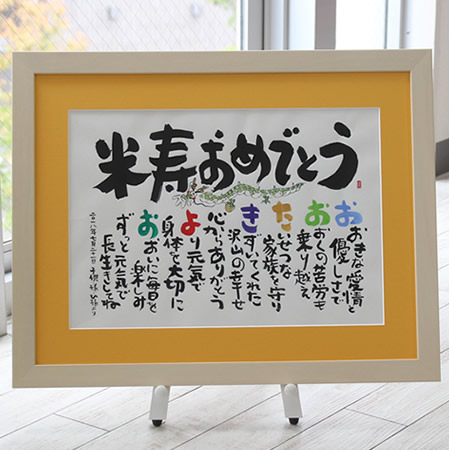 米寿おめでとう
おおきな愛情と
優しさで
おおくの苦労も
乗り越え
たいせつな
家族を守り
きずいてくれた
沢山の幸せ
心からありがとう
より元気で
身体を大切に
おおいに毎日を
楽しみ
ずっと元気で
長生きしてね